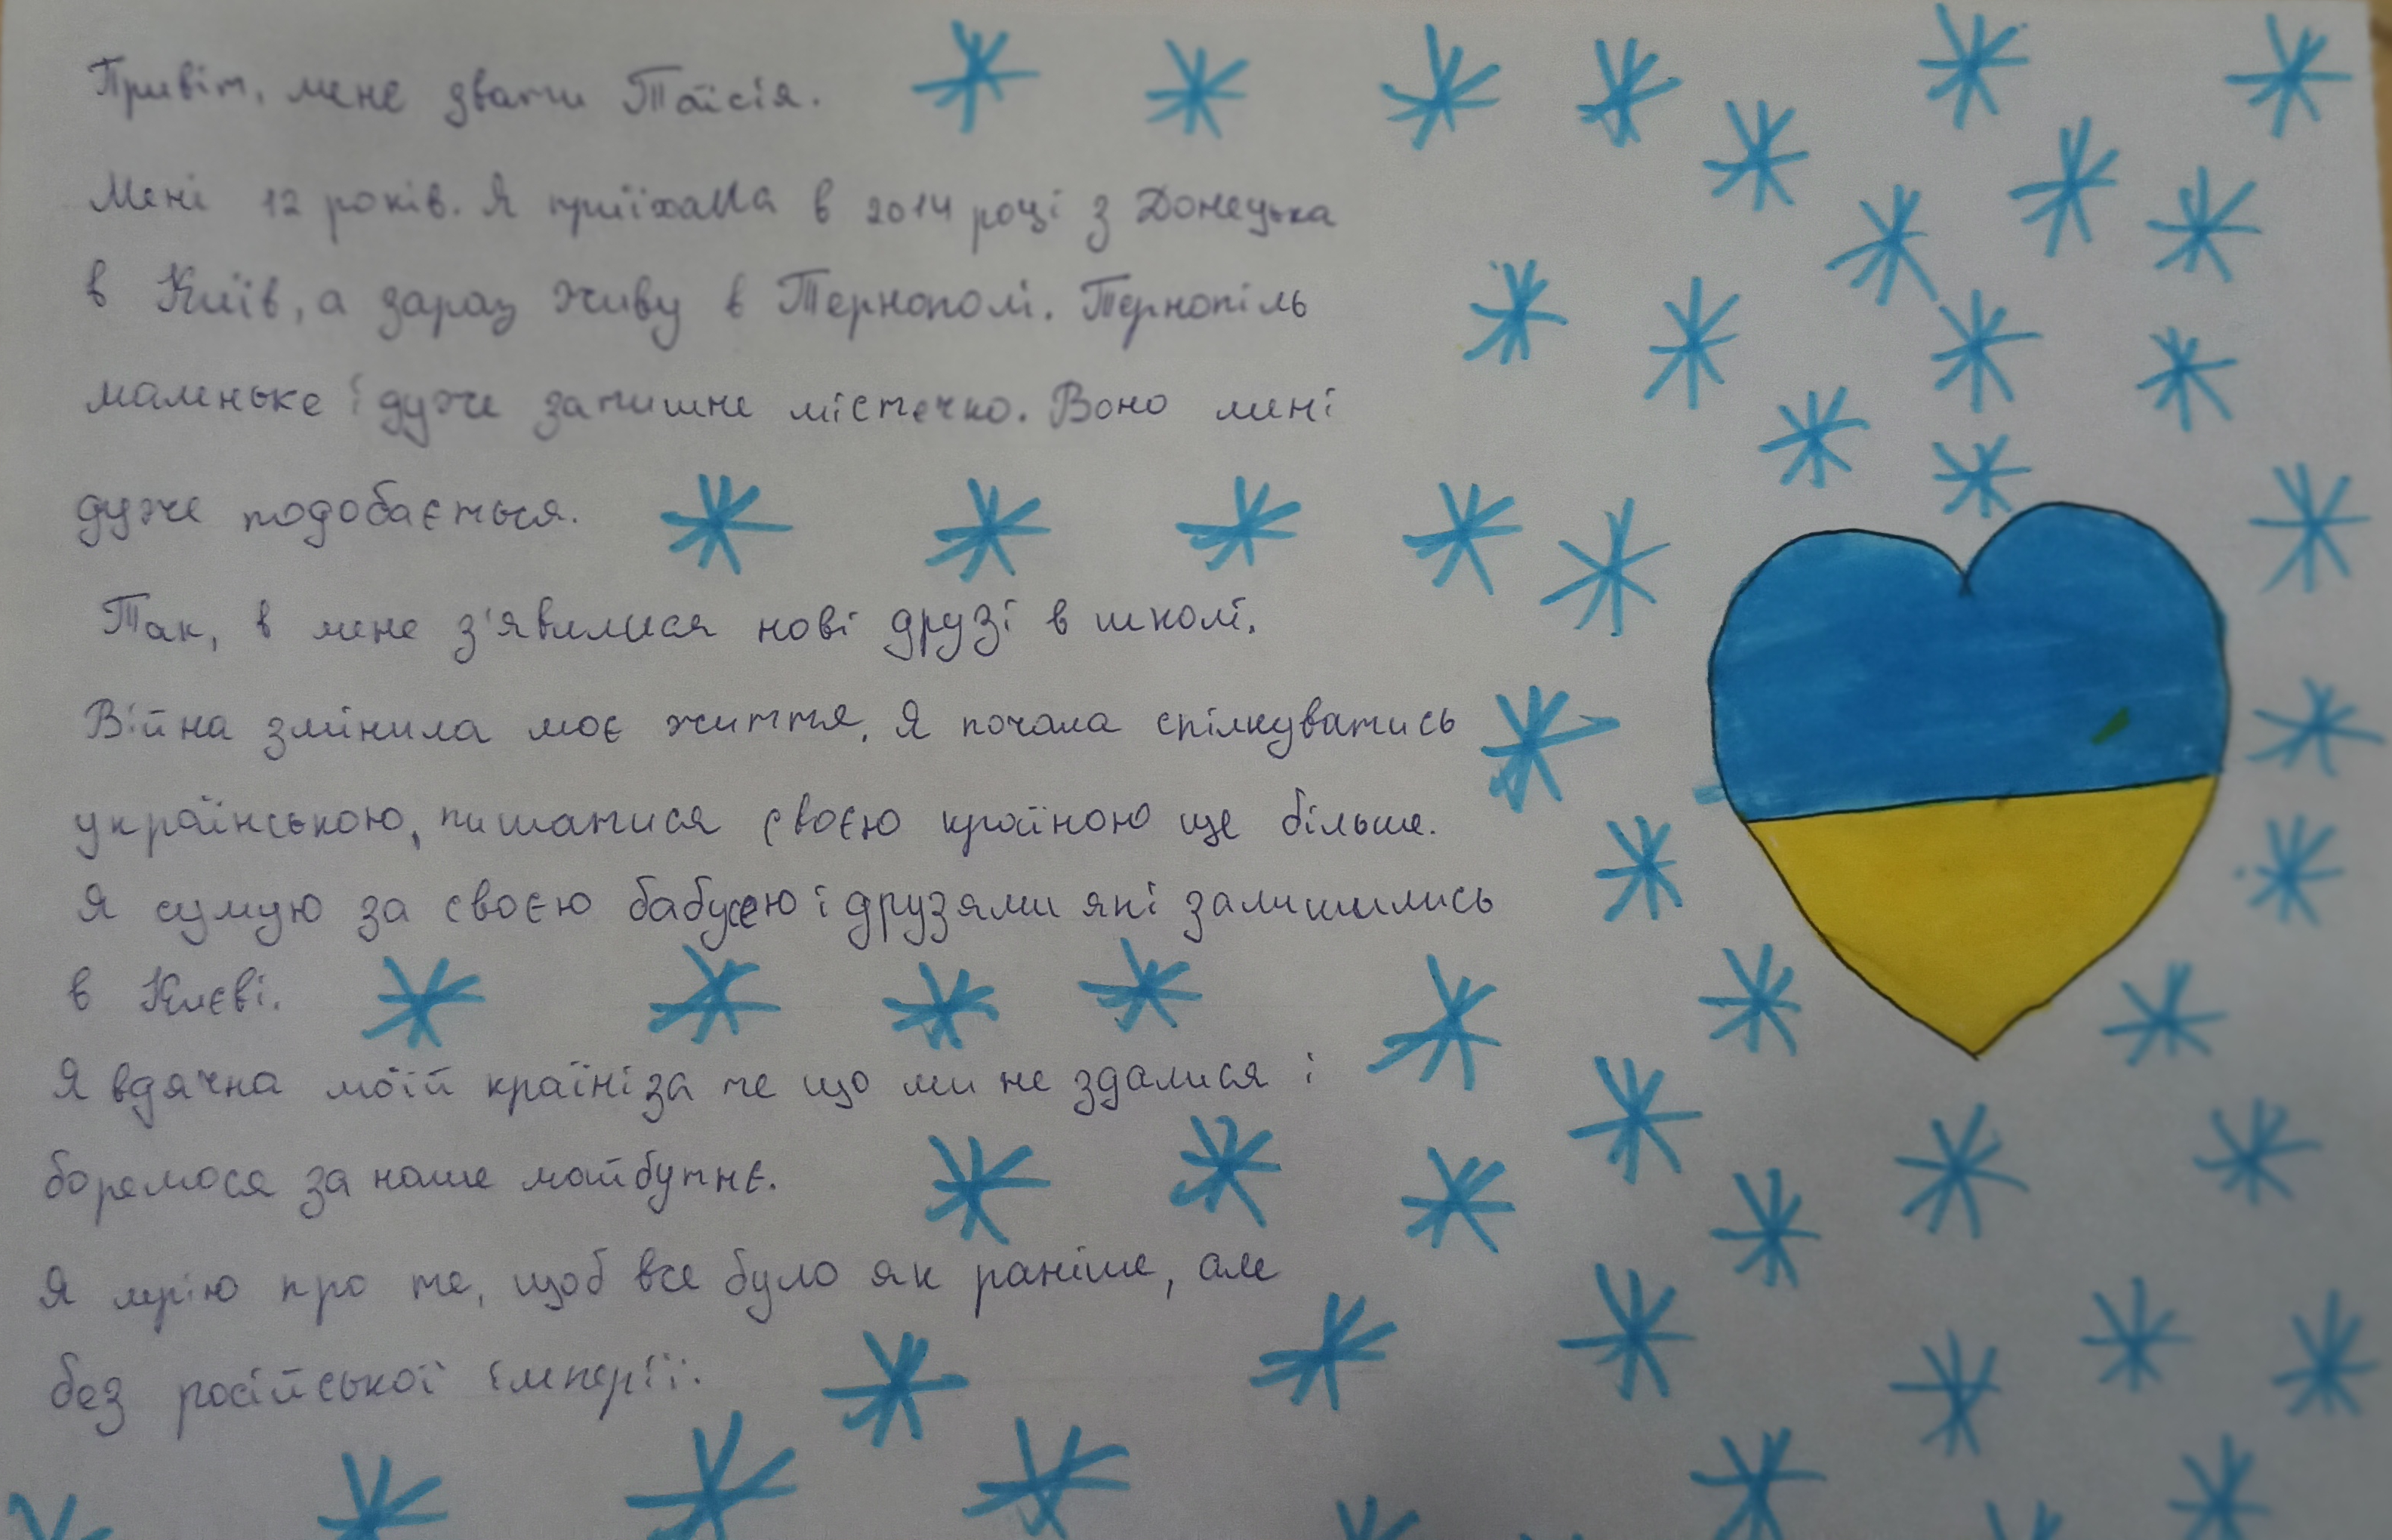 Привіт, мене звати Таїсія.
Мені 12 років. Я приїхала в 2014 році з Донецька
в Київ, а зараз живу в Тернополі. Тернопіль
маленьке і дуже затишне містечко. Воно мені
дуже подобається.
Так, в мене з'явилися нові друзі в школі.
Війна змінила моє життя. Я почала спілкуватись
українською, пишатися своєю країною ще більше.
Я сумую за своєю бабусею і друзями які залишились
в Києві.
Я вдячна моїй країні за те що ми не здалися і
боремося за наше майбутнє.
Я мрію про те, щоб все було як раніше, але
без російської імперії.